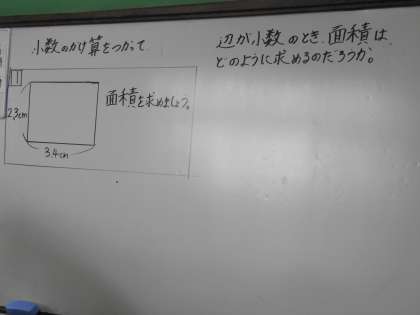 小数のかけ算をつかって
1
面積を求めましょう。
2.3cm
3.4cm
辺が小数のとき、面積は、
どのように求めるのだろうか。